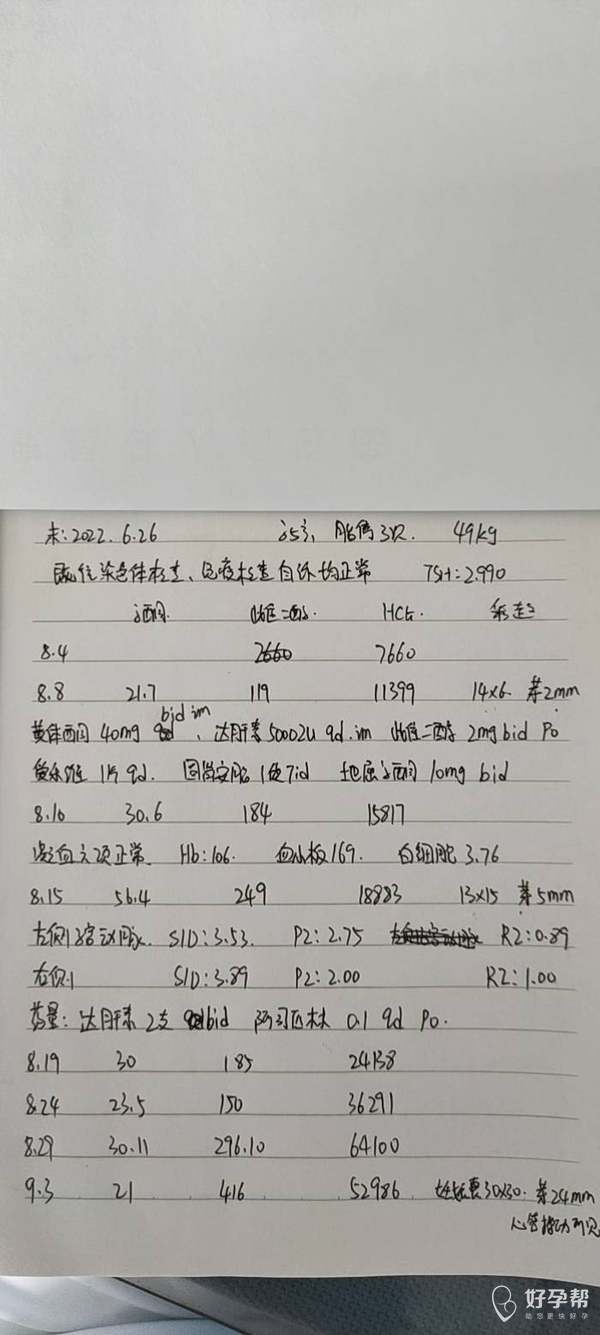 末:2022.6.26 胎停3次 49kg
既往染色体检查、免疫检查自诉均正常 TSH:2.990
孕酮 雌二醇 HCG 彩超
8.4 7660
8.8 21.7 119 11399 14×6 芽2mm
黄体酮 40mg bid im、达肝素5000Iu qd.im 雌二醇 2mg bid Po
爱乐维 1片 qd. 固肾安胎 1袋 Tid 地屈孕酮 10mg bid
8.10 30.6 184 15817
凝血六项正常 Hb:106. 血小板169. 白细胞 3.76
8.15 56.4 249 18883 13×15 芽5mm
左侧子宫动脉 S/D:3.53. PI:2.75 RI:0.89
右侧 S/D:3.89 PI:2.00 RI:1.00
药量:达肝素 2支 bid 阿司匹林 0.1 qd Po.
8.19 30 185 24138
8.24 23.5 150 36291
8.29 30.11 296.10 64100
9.3 21 416 52986 妊娠囊30×30. 芽24mm
心管搏动可见
好孕帮
助您更快好孕